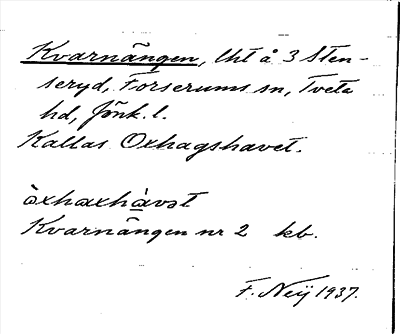 Kvarnängen, lht å 3 Sten-
seryd, Forserums sn, Tveta
hd, Jönk. l.
Kallas Oxhagshavet.
òxhaxhàvət
Kvarnängen nr 2 kb.
F. Neij 1937.